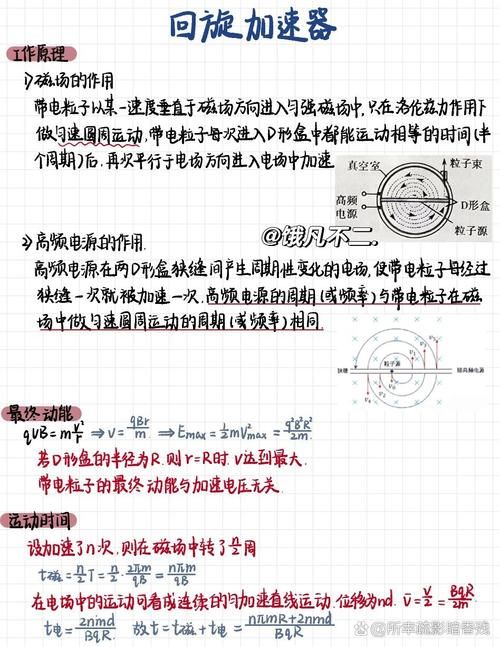 回旋加速器
工作原理
1)磁场的作用
带电粒子以某一速度垂直于磁场方向进入匀强磁场中,只在洛伦兹力作用下
做匀速圆周运动,带电粒子每次进入D形盒中都能运动相等的时间(半
个周期)后,再次平行于电场方向进入电场中加速
真空室
粒子束
高频
电源
D形盒
粒子源
@饿凡不二.
2)高频电源的作用.
高频电源在两D形盒狭缝间产生周期性变化的电场,使带电粒子每经过
狭缝一次就被加速一次.高频电源的周期(或频率)与带电粒子在磁
场中做匀速圆周运动的周期(或频率)相同.
狭缝
粒子源
接高频电源
最终动能
qvB=m v²/r ⇒v= qBr/m ⇒Emax=½mV²max= q²B²R²/2m
若D形盒的半径为R.则r=R时.v达到最大.
带电粒子的最终动能与加速电压无关.
运动时间
设加速了n次,则在磁场中转了n/2周
t磁=n/2 T=n/2·2πm/qB=nπm/qB
在电场中的运动可看成连续的匀加速直线运动.位移为nd. v̄=V/2=BqR/2m.
t电=2nmd/BqR 故t=t磁+t电=(nπmR+2nmd)/BqR
@所幸疏影暗香残